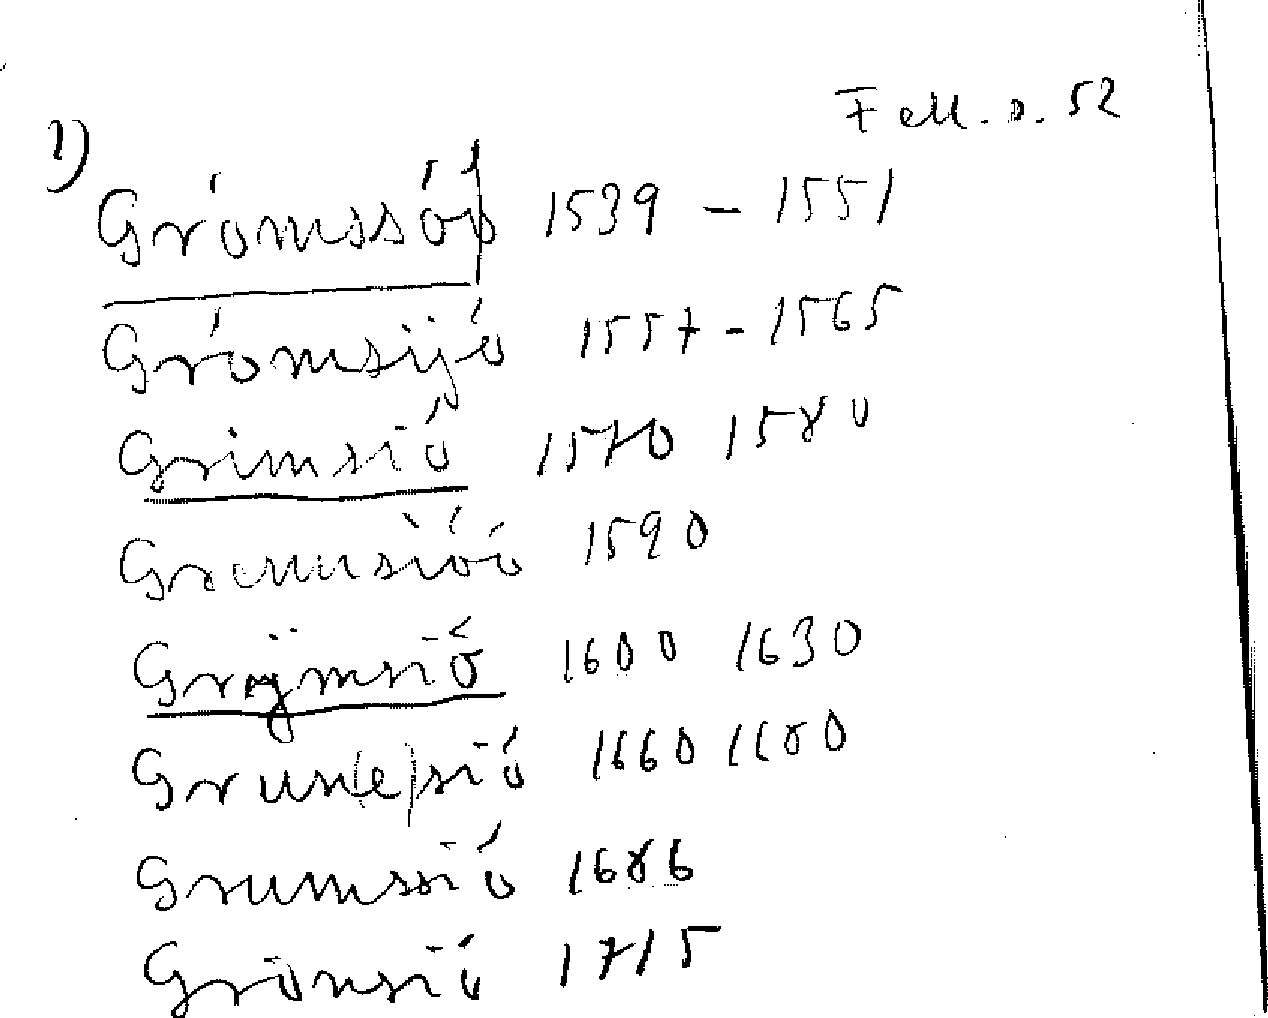 Fell. s. 52
1)
Grómssóó 1539 - 1551
Grómsijó 1557 - 1565
Grimsió 1570 1580
Gremsióó 1590
Grÿmsió 1600 1630
Grun(e)sió 1660 1680
Grumssió 1686
Grönsió 1715